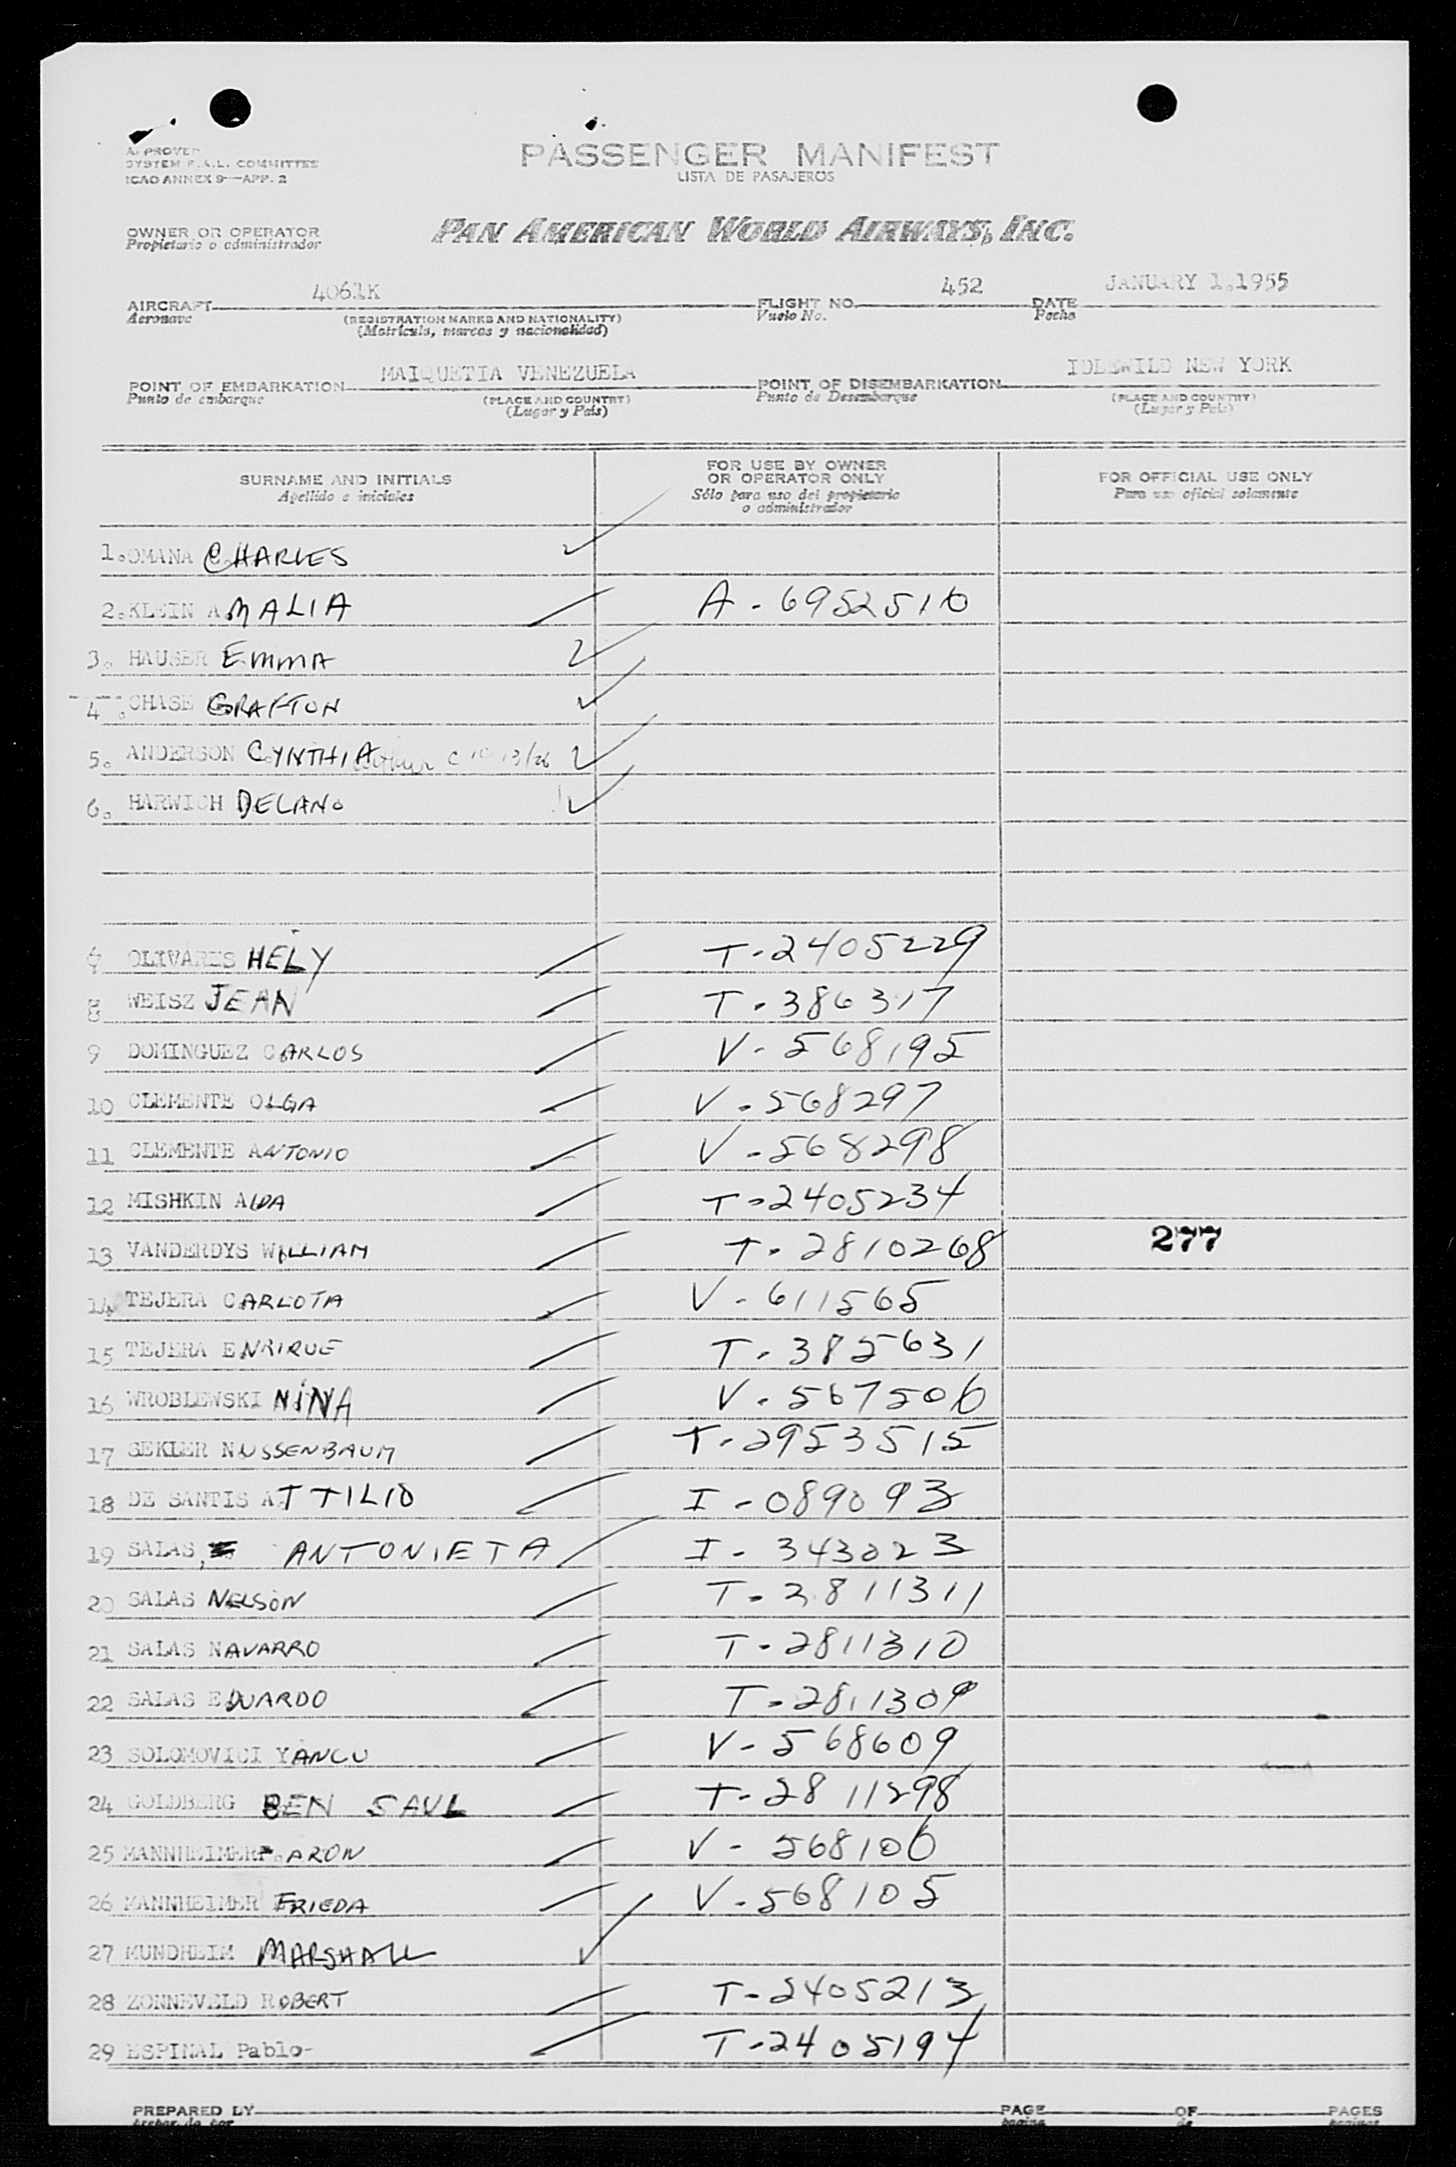 APPROVED
SYSTEM F.A.L. COMMITTEE
ICAO ANNEX 9—APP. 2
PASSENGER MANIFEST
LISTA DE PASAJEROS
OWNER OR OPERATOR
Propietario o administrador
PAN AMERICAN WORLD AIRWAYS, INC.
AIRCRAFT 4061K FLIGHT NO. 452 DATE JANUARY 1.1955
Aeronave (REGISTRATION MARKS AND NATIONALITY) Vuelo No. Fecha
(Matrícula, marcas y nacionalidad)
POINT OF EMBARKATION MAIQUETIA VENEZUELA POINT OF DISEMBARKATION IDLEWILD NEW YORK
Punto de embarque (PLACE AND COUNTRY) Punto de Desembarque (PLACE AND COUNTRY)
(Lugar y País) (Lugar y País)
SURNAME AND INITIALS FOR USE BY OWNER OR OPERATOR ONLY FOR OFFICIAL USE ONLY
Apellido e iniciales Sólo para uso del propietario o administrador Para uso oficial solamente
1. OMANA CHARLES
2. KLEIN AMALIA A-6952510
3. HAUSER EMMA
4. CHASE GRAFTON
5. ANDERSON CYNTHIA C 10/13/26
6. HARWICH DELANO
7 OLIVARES HELY T-2405229
8 WEISZ JEAN T-386317
9 DOMINGUEZ CARLOS V-568195
10 CLEMENTE OLGA V-568297
11 CLEMENTE ANTONIO V-568298
12 MISHKIN AIDA T-2405234
13 VANDERDYS WILLIAM T-2810268 277
14 TEJERA CARLOTA V-611565
15 TEJERA ENRIQUE T-385631
16 WROBLEWSKI NINA V-567506
17 SEKLER NUSSENBAUM T-2953515
18 DE SANTIS ATTILIO I-089093
19 SALAS, ANTONIETA I-343023
20 SALAS NELSON T-2811311
21 SALAS NAVARRO T-2811310
22 SALAS EDUARDO T-2811309
23 SOLOMOVICI YANCU V-568609
24 GOLDBERG BEN SAUL T-2811298
25 MANNHEIMER ARON V-568106
26 MANNHEIMER FRIEDA V-568105
27 MUNDHEIM MARSHALL
28 ZONNEVELD ROBERT T-2405213
29 ESPINAL Pablo- T-2405194
PREPARED BY PAGE OF PAGES